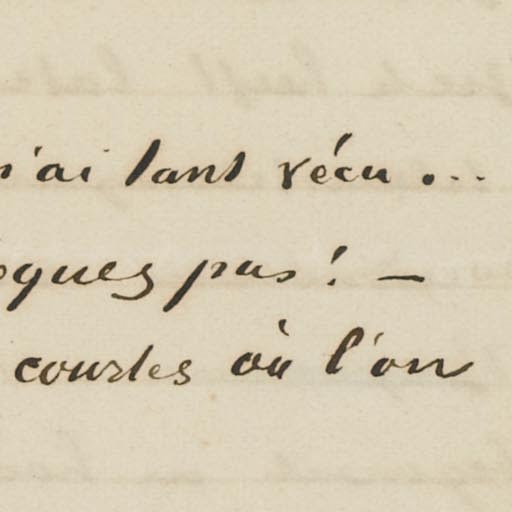 'ai tant vécu...
pas! —
courtes où l'on